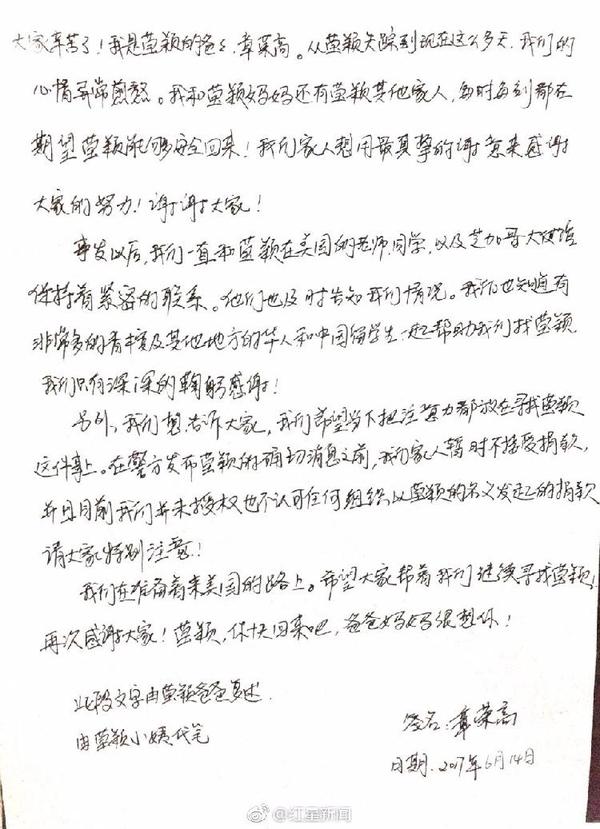 大家辛苦了！我是莹颖的爸爸，章荣高。从莹颖失踪到现在这么多天，我们的
心情异常煎熬。我和莹颖妈妈还有莹颖其他家人，每时每刻都在
期望莹颖能够安全回来！我们家人想用最真挚的谢意来感谢
大家的努力！谢谢大家！
事发以后，我们一直和莹颖在美国的老师、同学，以及芝加哥大使馆
保持着紧密的联系。他们也及时告知我们情况。我们也知道有
非常多的香槟及其他地方的华人和中国留学生一起帮助我们找莹颖，
我们只有深深的鞠躬感谢！
另外，我们想告诉大家，我们希望当下把注意力都放在寻找莹颖
这件事上。在警方发布莹颖的确切消息之前，我们家人暂时不接受捐款，
并且目前我们并未授权也不认可任何组织以莹颖的名义发起的捐款
请大家特别注意！
我们在准备着来美国的路上。希望大家帮着我们继续寻找莹颖，
再次感谢大家！莹颖，你快回来吧，爸爸妈妈很想你！
此段文字由莹颖爸爸口述
由莹颖小姨代笔
签名：章荣高
日期：2017年6月14日
@红星新闻